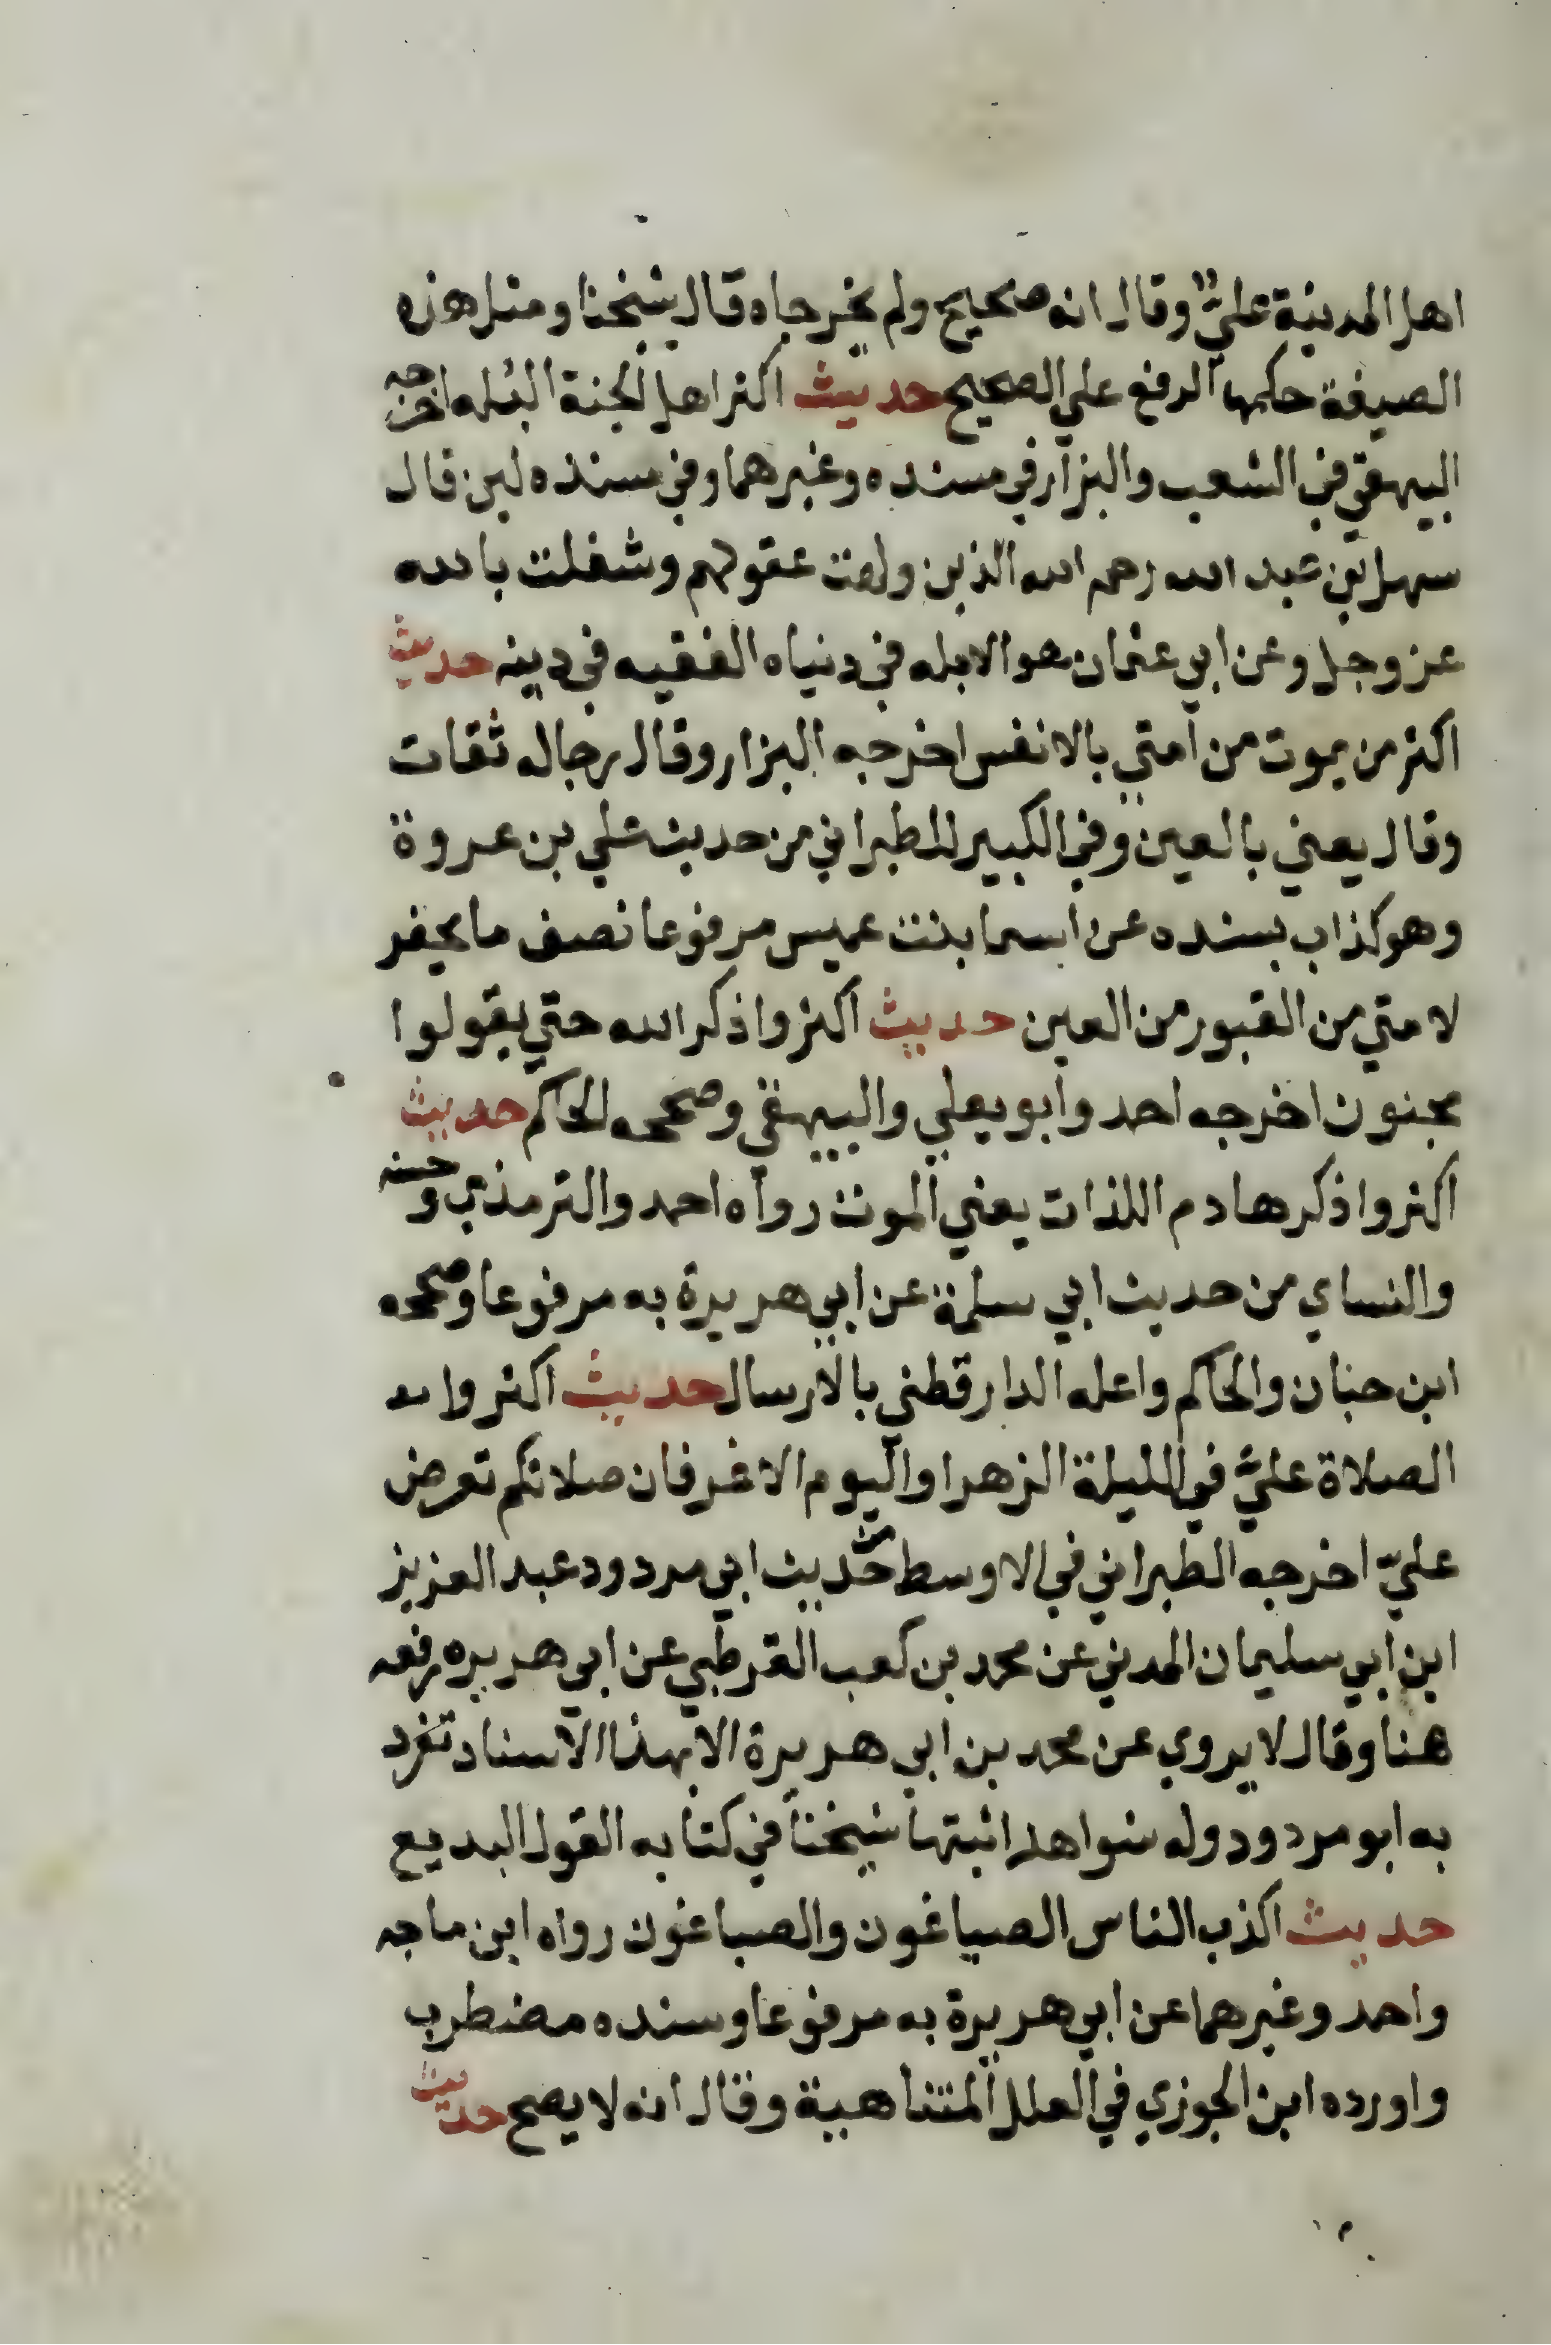 اهل المدينة عليّ وقال انه صحيح ولم يخرجاه قال شيخنا ومثل هذه
الصيغة حكمها الرفع علي الصحيح حديث اكثر اهل الجنة البله اخرجه
البيهقي في الشعب والبزار في مسنده وغيرهما وفي مسنده لين قال
سهل بن عبد الله رحمه الله الذين ولهت عقولهم وشغلت بالله
عز وجل وعن ابي عثمان هو الابله في دنياه الفقيه في دينه حديث
اكثر من يموت من امتي بالانفس اخرجه البزار وقال رجاله ثقات
وقال يعني بالعين وفي الكبير للطبراني من حديث علي بن عروة
وهو كذاب بسنده عن اسما بنت عميس مرفوعا نصف ما يحفر
لامتي من القبور من العين حديث اكثروا ذكر الله حتي يقولوا
مجنون اخرجه احد وابو يعلي والبيهقي وصححه الحاكم حديث
اكثروا ذكر هادم اللذات يعني الموت رواه احمد والترمذي وحسنه
والنساي من حديث ابي سلمة عن ابي هريرة به مرفوعا وصححه
ابن حبان والحاكم واعله الدارقطني بالارسال حديث اكثروا
الصلاة عليّ في الليلة الزهرا واليوم الاغر فان صلاتكم تعرض
عليّ اخرجه الطبراني في الاوسط من حديث ابي مردود عبد العزيز
ابن ابي سليمان المدني عن محمد بن كعب القرطبي عن ابي هريره رفعه
هنا وقال لا يروي عن محمد بن ابي هريرة الا بهذا الاسناد تفرد
به ابو مردود وله شواهد اثبتها شيخنا في كتابه القول البديع
حديث اكذب الناس الصياغون والصباغون رواه ابن ماجه
واحمد وغيرهما عن ابي هريرة به مرفوعا وسنده مضطرب
واورده ابن الجوزي في العلل المتناهية وقال انه لا يصح حديث